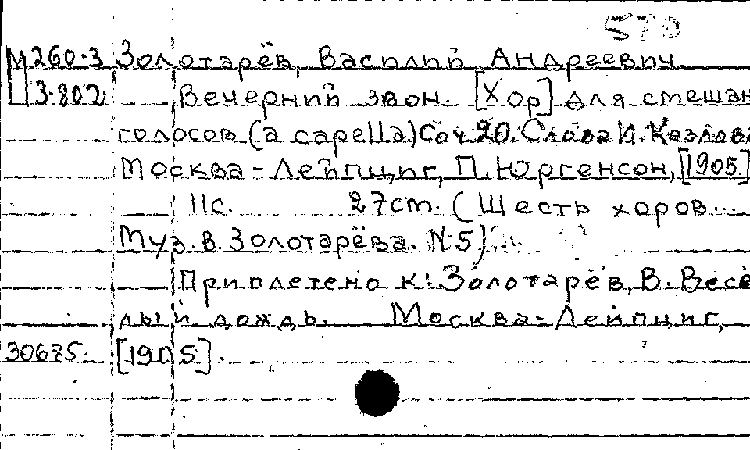 570
М 260.3 Золотарёв, Василий Андреевич
3.802 Вечерний звон. [Хор] для смешан
голосов (a capella) Соч 20. Слова И. Козлова
Москва - Лейпциг, П. Юргенсон, [1905]
11с. 27cm. (Шесть хоров
Муз. В. Золотарёва. N 5)
Приплетено к: Золотарёв, В. Весё
лый дождь. Москва - Лейпциг,
30675. [1905].